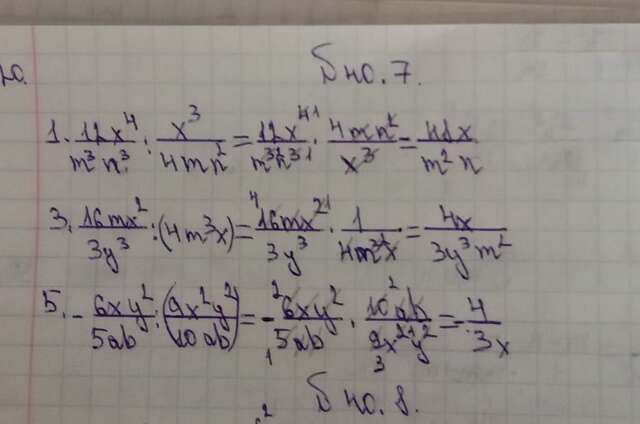 Бно. 7.
1. 12x⁴/m³n³ : x³/4mn² = 12x⁴/m³n³ · 4mn²/x³ = 48x/m²n
3. 16mx²/3y³ : (4m³x) = 16mx²/3y³ · 1/4m³x = 4x/3y³m²
5. - 6xy²/5ab : (9x²y²/10ab) = - 6xy²/5ab · 10ab/9x²y² = - 4/3x
Бно. 8.